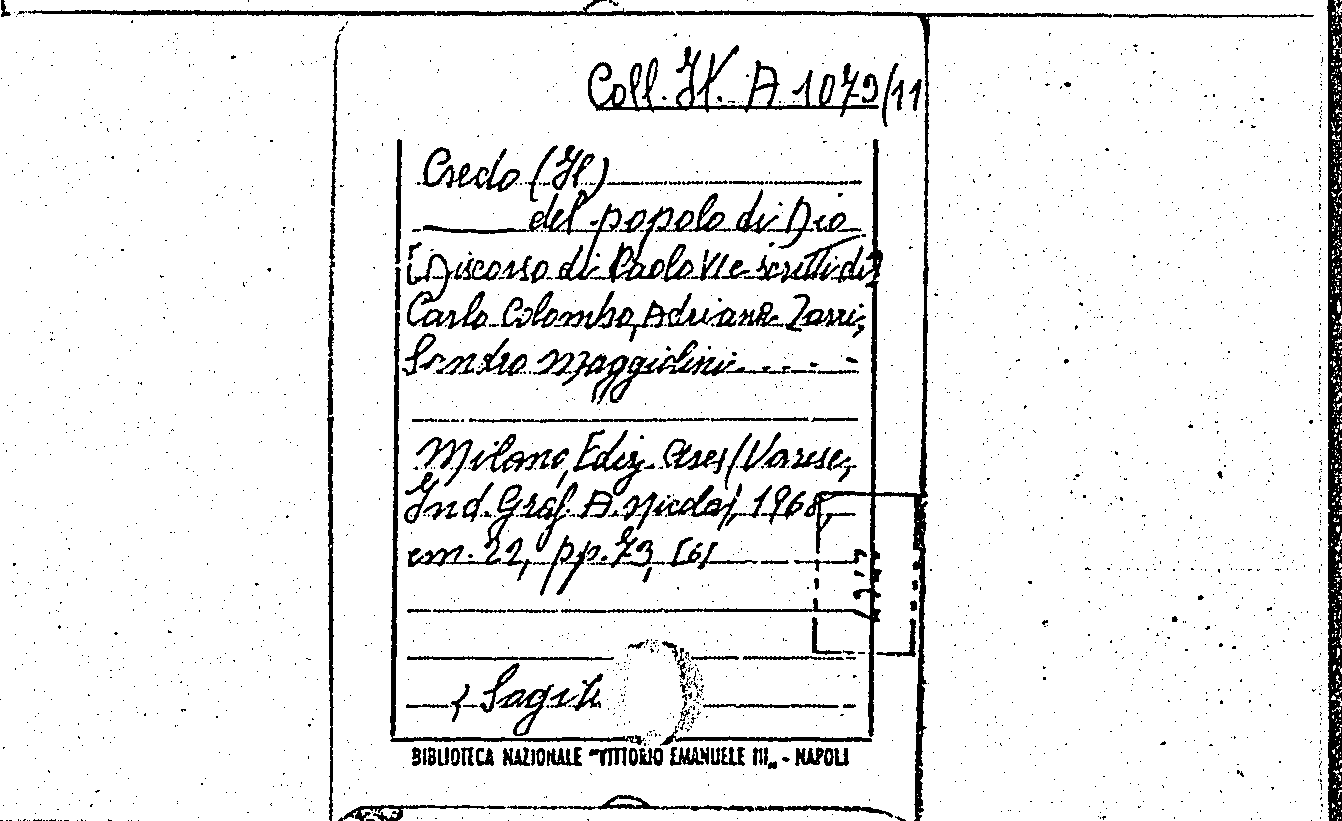 Coll. It. A 1079/11
Credo (Il)
del popolo di Dio
[Discorso di Paolo VI e scritti di]
Carlo Colombo, Adriana Zarri,
Sandro Maggiolini....-
Milano, Ediz. Ares (Varese,
Ind. Graf. A. Nicola), 1968,
cm. 22, pp. 73, [6]
BIBLIOTECA NAZIONALE "VITTORIO EMANUELE III„ - NAPOLI